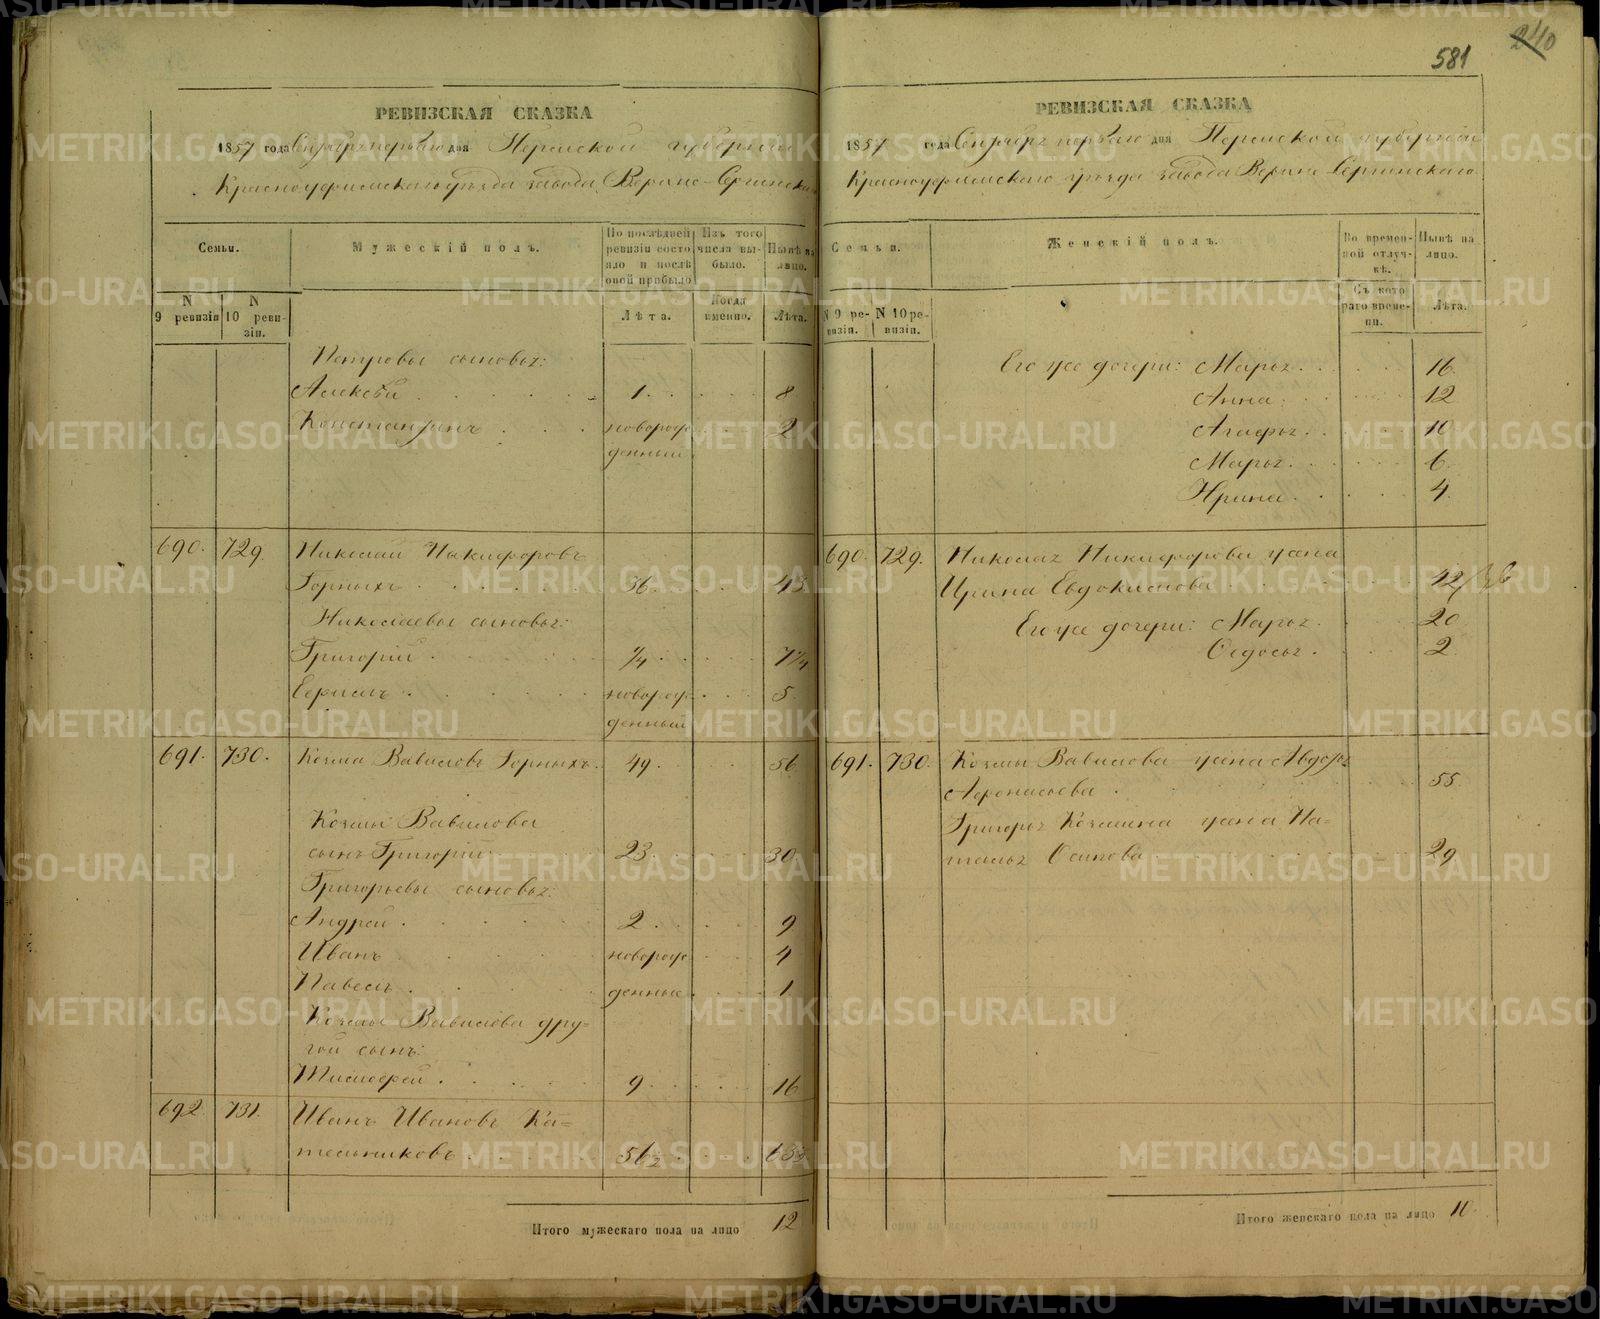 240
581
РЕВИЗСКАЯ СКАЗКА
1857 года Сентября первого дня Пермской губернии
Красноуфимскаго уѣзда завода Верхне-Сергинскаго
Семьи.
Мужескій полъ.
По послѣдней ревизіи состояло и послѣ оной прибыло
Изъ того числа выбыло.
Нынѣ на лицо.
N 9 ревизіи
N 10 ревизіи.
Лѣта.
Когда именно.
Лѣта.
Петровы сыновья:
Алексѣй 1 8
Константинъ новорож 2
денный
690. 729. Николай Никифоровъ
Горныхъ 36 43
Николаевы сыновья:
Григорій 1/4 7 1/4
Ефримъ новорож 5
денный
691. 730. Козма Вавиловъ Горныхъ 49 56
Козмы Вавилова
сынъ Григорій 23 30
Григорьевы сыновья:
Андрей 2 9
Иванъ новорож 4
Павелъ денные 1
Козмы Вавилова дру=
гой сынъ:
Тимофей 9 16
692 731. Иванъ Ивановъ Ка=
тельниковъ 56½ 63½
Итого мужескаго пола на лицо 12
РЕВИЗСКАЯ СКАЗКА
1857 года Сентября первого дня Пермской губернии
Красноуфимскаго уѣзда завода Верхне Сергинскаго
Семьи.
Женскій полъ.
Во временной отлучкѣ.
Нынѣ на лицо.
N 9 ревизіи.
N 10 ревизіи.
Съ котораго времени.
Лѣта.
Его же дочери: Марья 16
Анна 12
Агафья 10
Марья 6
Ирина 4
690. 729. Николая Никифорова жена
Ирина Евдокимова 42
Его же дочери: Марья 20
Федосья 2
691. 730. Козмы Вавилова жена Авдотья
Афонасьева 55
Григорья Козмина жена На=
талья Осипова 29
Итого женскаго пола на лицо 10
METRIKI.GASO-URAL.RU